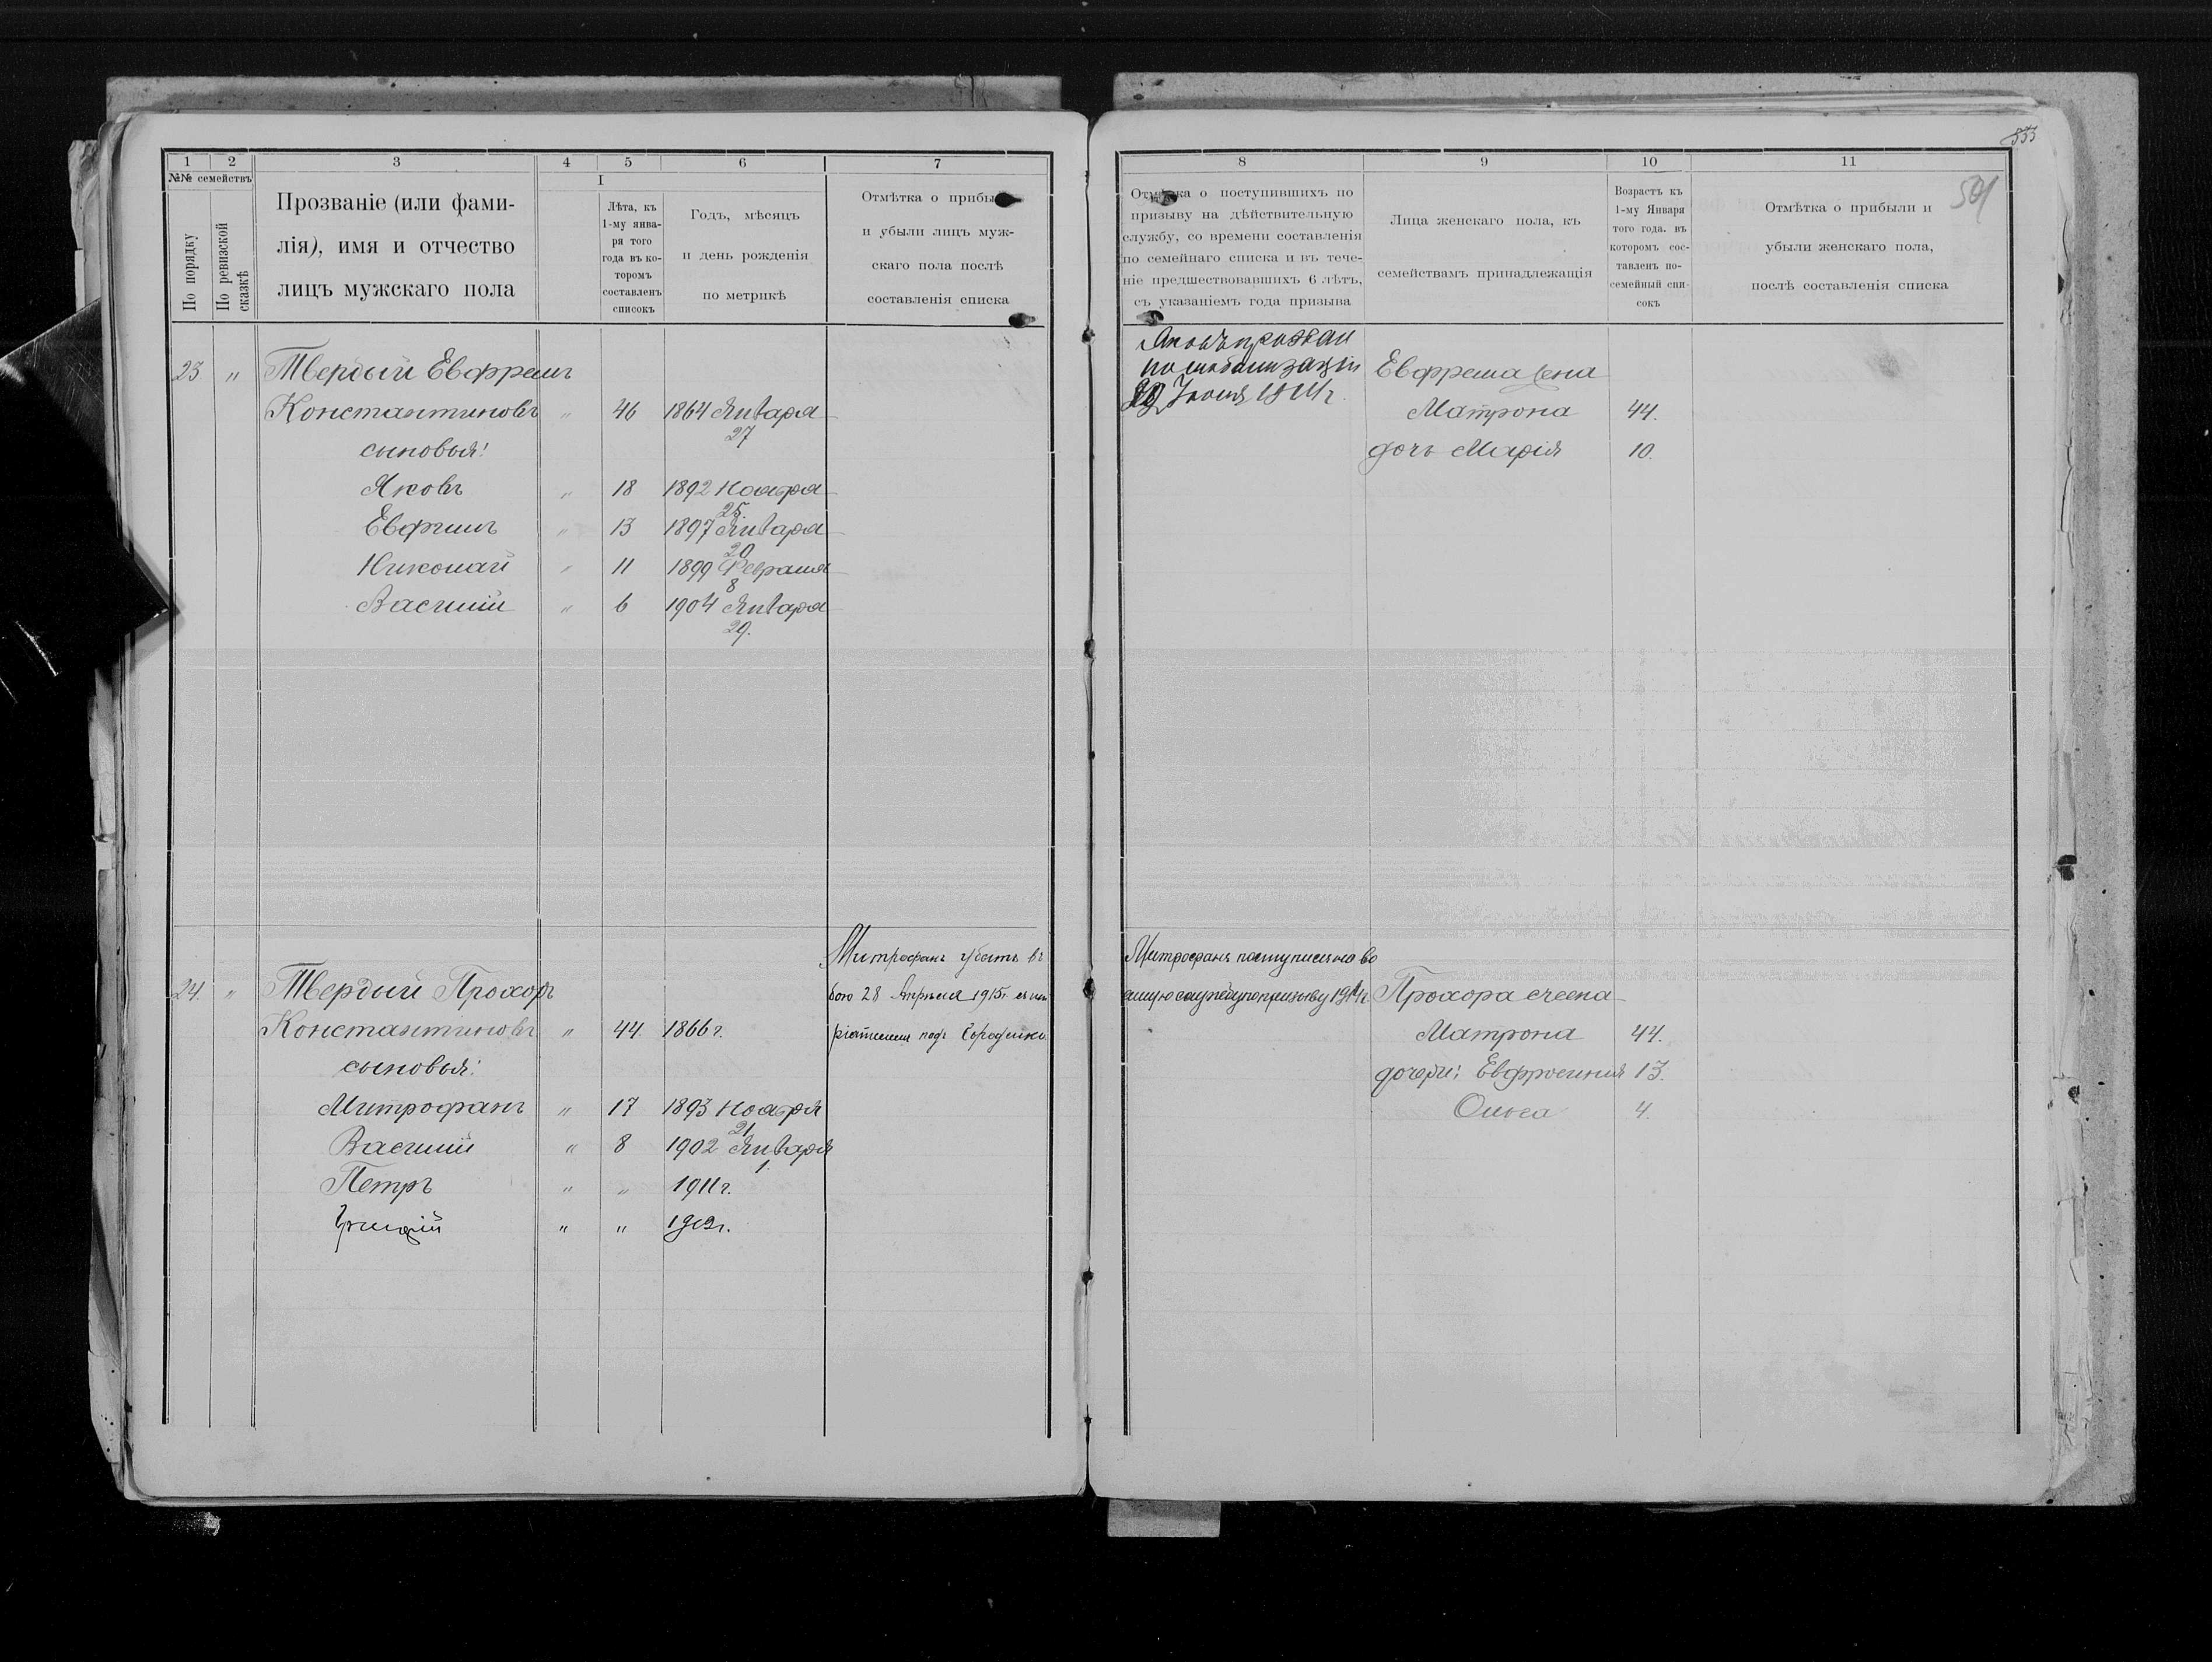 1 2 3 4 5 6 7
№№ семействъ
По порядку
По ревизской сказкѣ
Прозваніе (или фами-
лія), имя и отчество
лицъ мужскаго пола
I
Лѣта, къ
1-му янва-
ря того
года въ ко-
торомъ
составленъ
списокъ
Годъ, мѣсяцъ
и день рожденія
по метрикѣ
Отмѣтка о прибы
и убыли лицъ муж-
скаго пола послѣ
составленія списка
23. " Твердый Евфремъ
Константиновъ " 46 1864 Января
27
сыновья:
Яковъ " 18 1892 Ноября
25.
Евфимъ " 13 1897 Января
20
Николай " 11 1899 Февраля
8
Василій " 6 1904 Января
29.
Митрофанъ убитъ въ
24. " Твердый Прохоръ бою 28 Апрѣля 1915г.
Константиновъ " 44. 1866 г. подъ
сыновья:
Митрофанъ " 17 1893 Ноября
21
Василій " 8 1902 Января
1.
Петръ " " 1911 г.
" "
333
501
8 9 10 11
Отмѣтка о поступившихъ по
призыву на дѣйствительную
службу, со времени составленія
по семейнаго списка и въ тече-
ніе предшествовавшихъ 6 лѣтъ,
съ указаніемъ года призыва
Лица женскаго пола, къ
семействамъ принадлежащія
Возрастъ къ
1-му Января
того года. въ
которомъ сос-
тавленъ по-
семейный спи-
сокъ
Отмѣтка о прибыли и
убыли женскаго пола,
послѣ составленія списка
Яковъ призван
по мобилизаціи Евфрема жена
1914 г. Матрона 44.
дочь Марія 10.
Митрофанъ поступилъ на во
енную службу по призыву 1914 г. Прохора жена
Матрона 44.
дочери: Евфросинія 13.
Ольга 4.